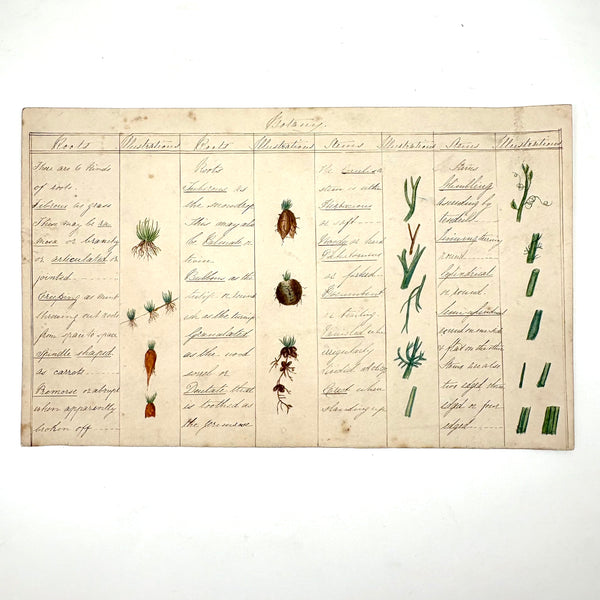 Botany.
Roots
Illustrations
Roots
Illustrations
Stems
Illustrations
Stems
Illustrations
There are 10 kinds
of roots.
Fibrous as grass
These may be ra
mose or branchy
or articulated or
jointed
Creeping as mint
throwing out roots
from space to space
Spindle shaped
as carrots
Premorse or abrupt
when apparently
broken off
Roots
Tuberous as
the
This may also
be Palmate or
Bulbous as the
tulip or round
as the turnip
Granulated
as the wood
sorrel or
Dentate that
is toothed as
the
The
stem is either
Herbaceous
or soft
Woody or hard
Dichotomous
or forked
Procumbent
or trailing
when
irregularly
Erect when
standing up
Stems
ascending by
tendrils
Twining turning
round
Cylindrical
or round
Semi-cylindrical
round on one side
& flat on the other
Stems are also
two edged three
edged or four
edged